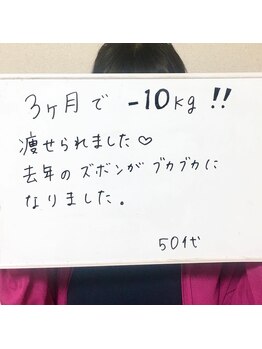 3ヶ月で -10kg !!
痩せられました♡
去年のズボンがブカブカに
なりました。
50代